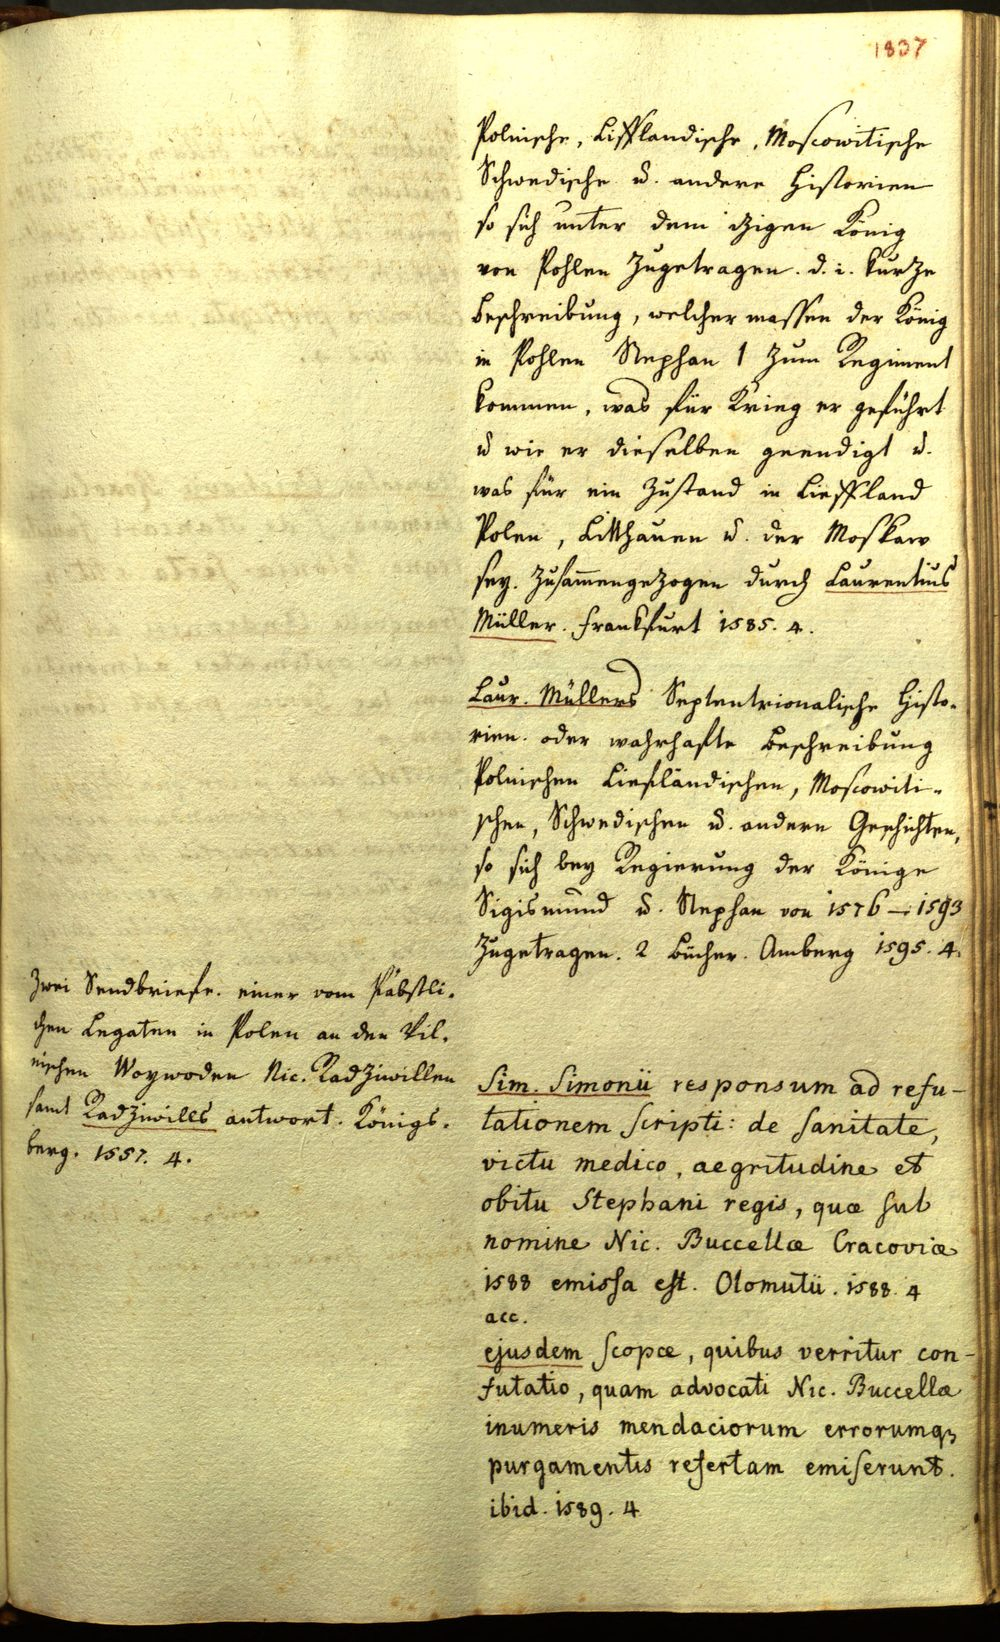 1837
Polnische, Liffländische, Moscowitische
Schwedische u. andere Historien
so sich unter dem itzigen König
von Pohlen zugetragen. d. i. kurtze
Beschreibung, welcher massen der König
in Pohlen Stephan 1 zum Regiment
kommen, was für Krieg er geführt
u wie er dieselben geendigt u.
was für ein Zustand in Lieffland
Polen, Litthauen u. der Moskaw
sey. Zusammengezogen durch Laurentius
Müller. Frankfurt 1585. 4.
Laur. Müllers Septentrionalische Histo-
rien. oder wahrhafte Beschreibung
Polnischen Liefländischen, Moscowiti-
schen, Schwedischen u. andern Geschichten,
so sich bey Regierung der Könige
Sigismund u. Stephan von 1576 — 1593
zugetragen. 2 Bücher. Amberg 1595. 4.
Zwei Sendbriefe. einer vom Päbstli-
chen Legaten in Polen an den Vil-
nischen Woywoden Nic. Radziwillen
samt Radziwills antwort. Königs-
berg. 1557. 4.
Sim. Simonii responsum ad refu-
tationem scripti: de sanitate,
victu medico, aegritudine et
obitu Stephani regis, quæ sub
nomine Nic. Buccellæ Cracoviæ
1588 emissa est. Olomutii. 1588. 4
acc.
ejusdem scopæ, quibus verritur con-
futatio, quam advocati Nic. Buccellæ
inumeris mendaciorum errorumqȝ
purgamentis refertam emiserunt.
ibid. 1589. 4